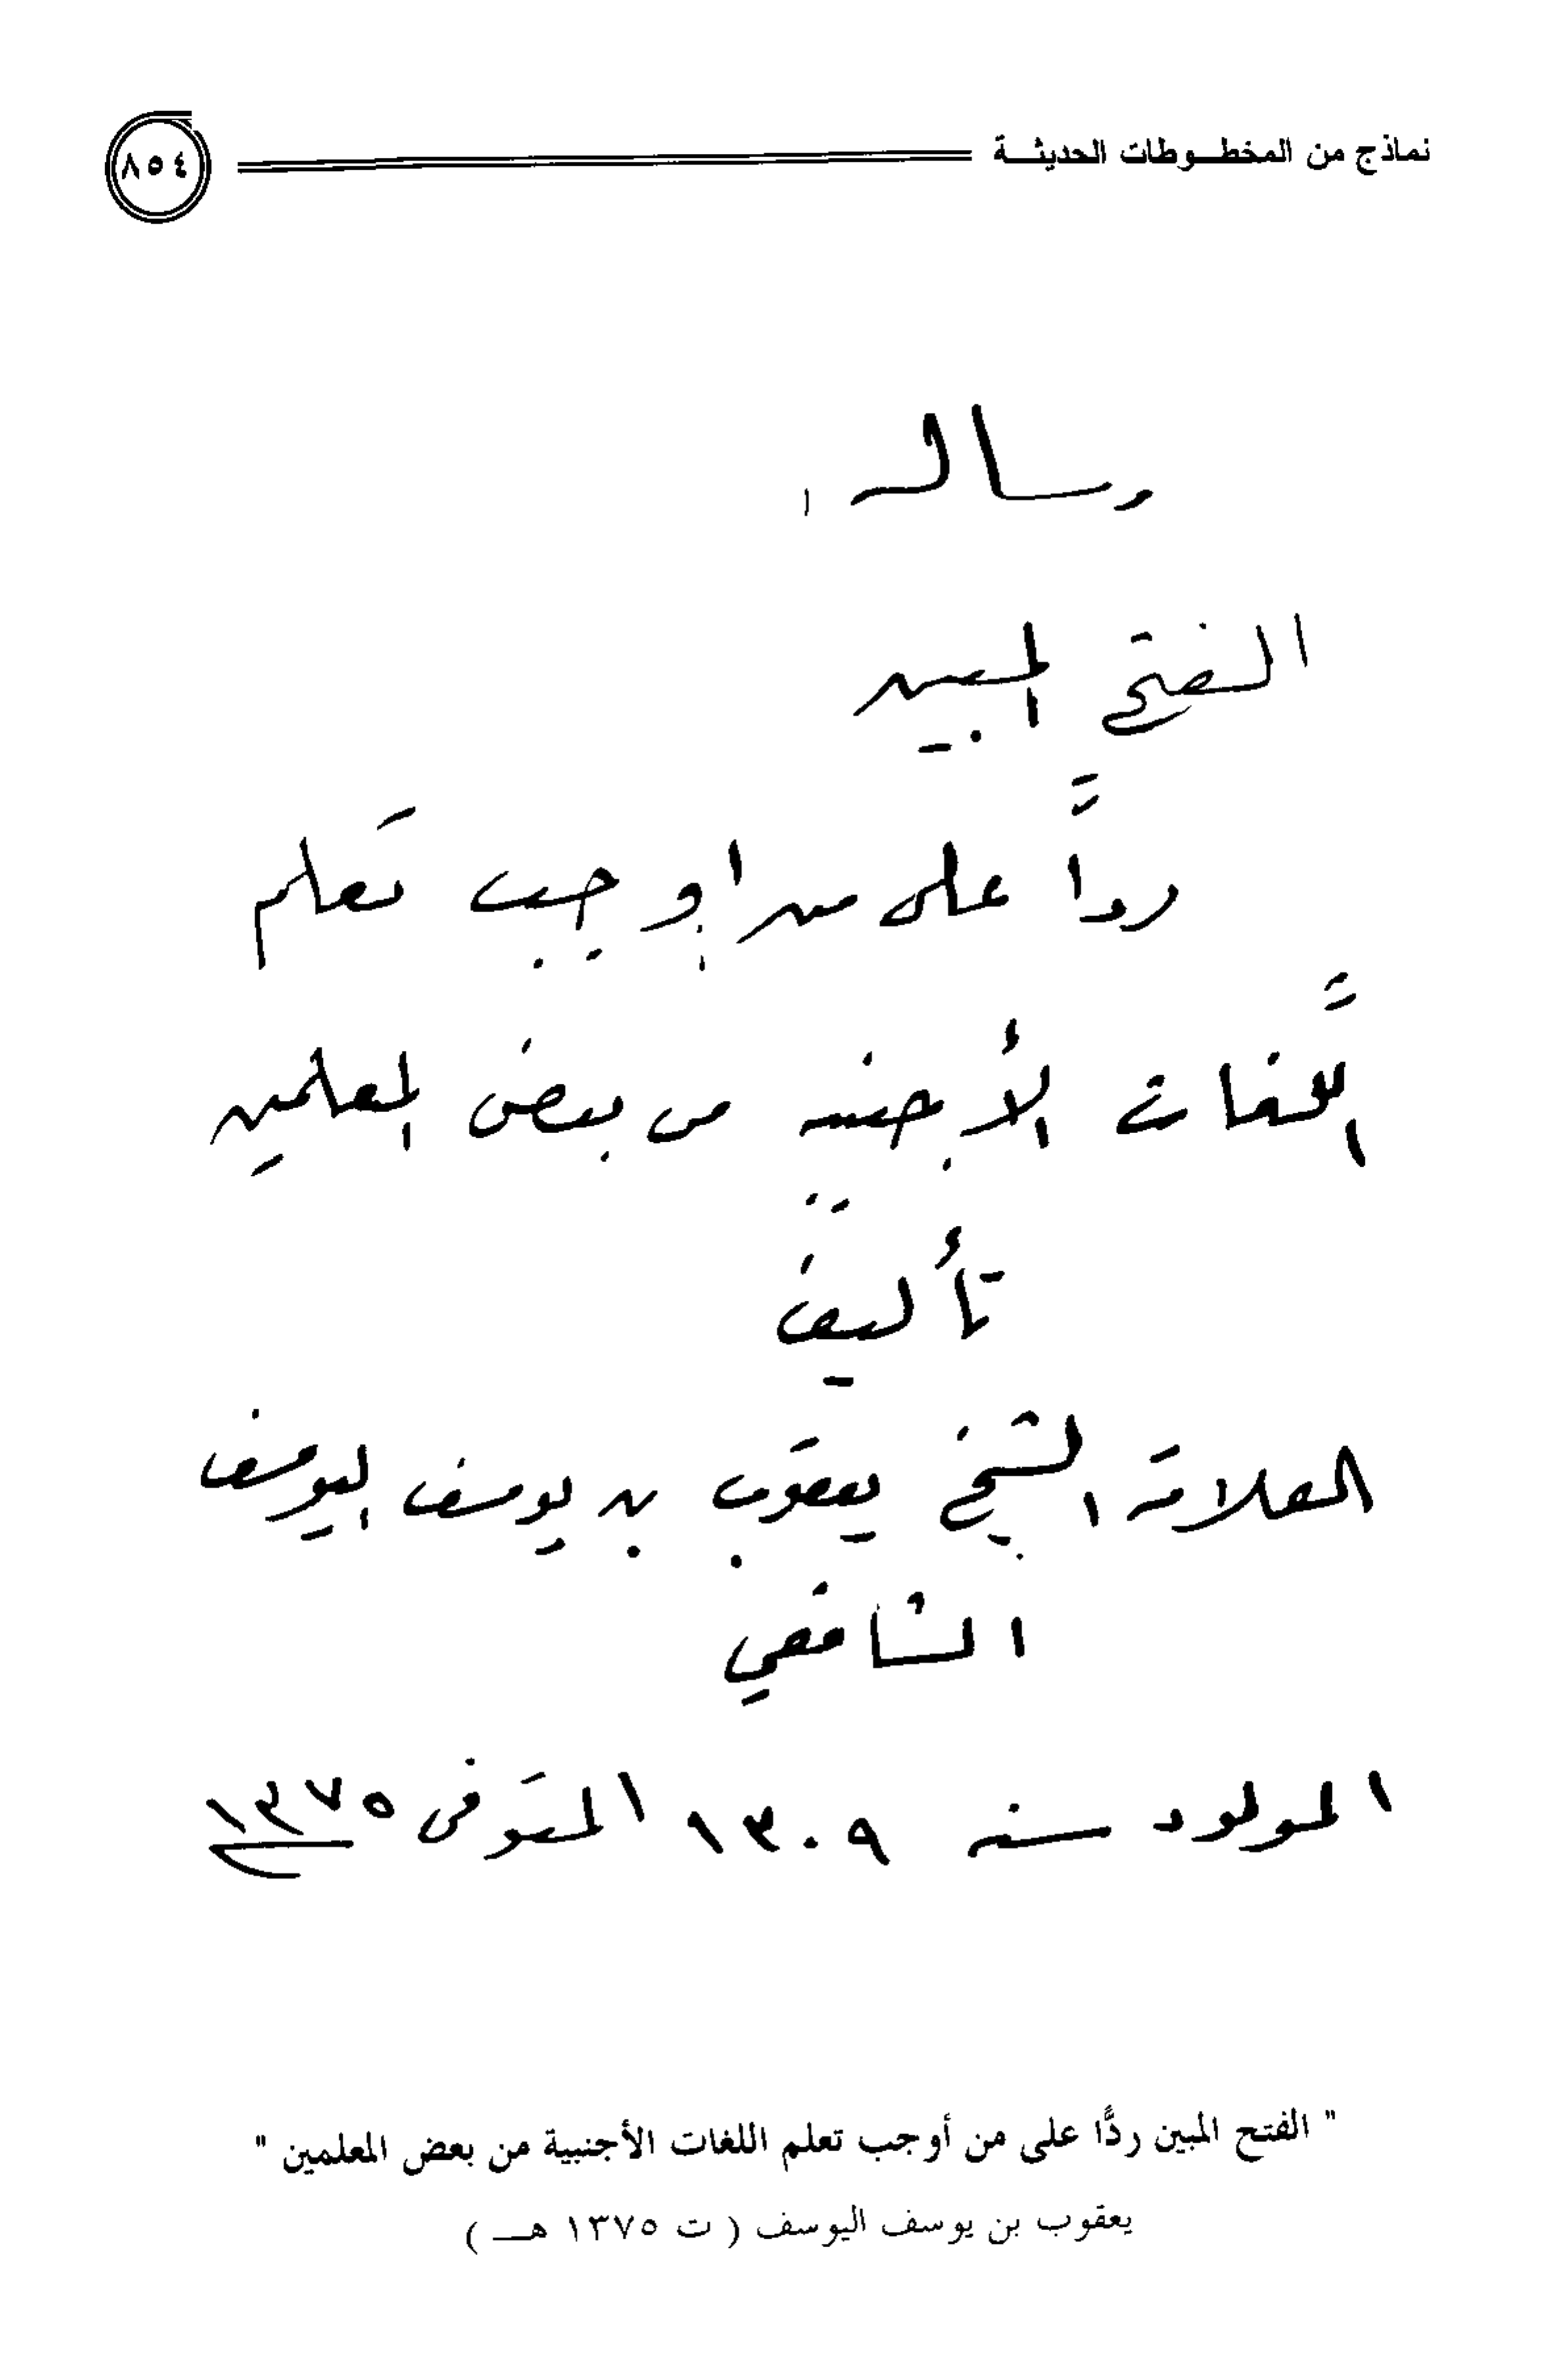 نماذج من المخطــوطات الحديثــة
٨٥٤
رساله
الفتح المبين
رداً على من اوجب تعلم
اللّغات الأجنبيه من بعض المعلمين
تأليف
العلامة الشيخ يعقوب بن يوسف اليوسف
الشافعي
المولود سنه ١٣٠٩ المتوفى ١٣٧٥
" الفتح المبين ردًّا على من أوجب تعلم اللغات الأجنبية من بعض المعلمين "
يعقوب بن يوسف اليوسف ( ت ١٣٧٥ هــ )